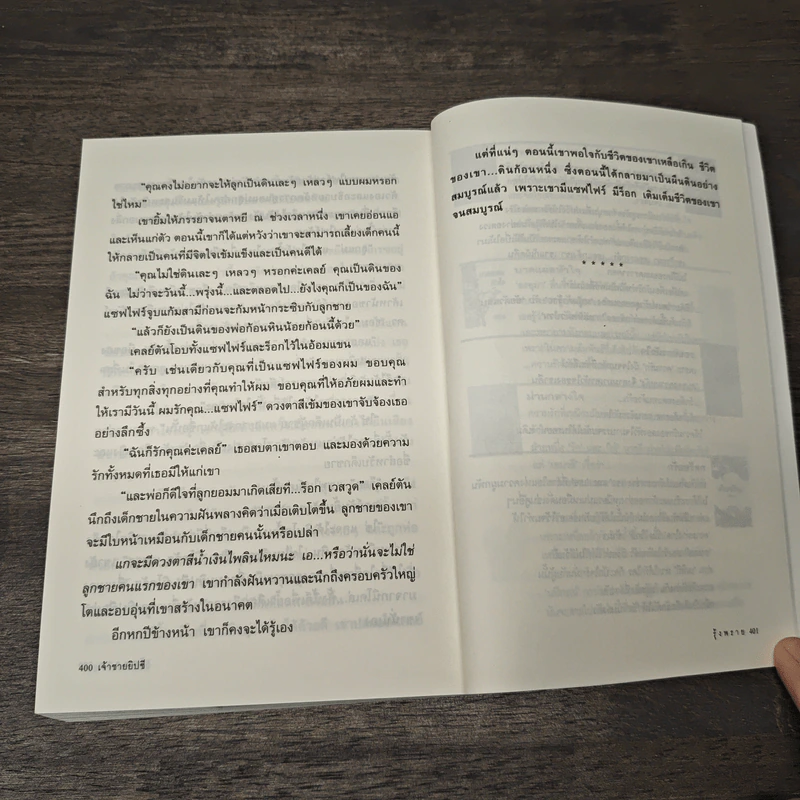 “คุณคงไม่อยากจะให้ลูกเป็นดินเละๆ เหลวๆ แบบผมหรอก
ใช่ไหม”
เขายิ้มให้ภรรยาจนตาหยี ณ ช่วงเวลาหนึ่ง เขาเคยอ่อนแอ
และเห็นแก่ตัว ตอนนี้เขาก็ได้แต่หวังว่าเขาจะสามารถเลี้ยงเด็กคนนี้
ให้กลายเป็นคนที่มีจิตใจเข้มแข็งและเป็นคนดีได้
“คุณไม่ใช่ดินเละๆ เหลวๆ หรอกค่ะเคลย์ คุณเป็นดินของ
ฉัน ไม่ว่าจะวันนี้...พรุ่งนี้...และตลอดไป...ยังไงคุณก็เป็นของฉัน”
แซฟไฟร์จูบแก้มสามีก่อนจะก้มหน้ากระซิบกับลูกชาย
“แล้วก็ยังเป็นดินของพ่อก้อนหินน้อยก้อนนี้ด้วย”
เคลย์ตันโอบทั้งแซฟไฟร์และร็อกไว้ในอ้อมแขน
“ครับ เช่นเดียวกับคุณที่เป็นแซฟไฟร์ของผม ขอบคุณ
สำหรับทุกสิ่งทุกอย่างที่คุณทำให้ผม ขอบคุณที่ให้อภัยผมและทำ
ให้เรามีวันนี้ ผมรักคุณ...แซฟไฟร์” ดวงตาสีเข้มของเขาจับจ้องเธอ
อย่างลึกซึ้ง
“ฉันก็รักคุณค่ะเคลย์” เธอสบตาเขาตอบ และมองด้วยความ
รักทั้งหมดที่เธอมีให้แก่เขา
“และพ่อก็ดีใจที่ลูกยอมมาเกิดเสียที...ร็อก เวสวูด” เคลย์ตัน
นึกถึงเด็กชายในความฝันพลางคิดว่าเมื่อเติบโตขึ้น ลูกชายของเขา
จะมีใบหน้าเหมือนกับเด็กชายคนนั้นหรือเปล่า
แกจะมีดวงตาสีน้ำเงินไพลินไหมนะ เอ...หรือว่านั่นจะไม่ใช่
ลูกชายคนแรกของเขา เขากำลังฝันหวานและนึกถึงครอบครัวใหญ่
โตและอบอุ่นที่เขาสร้างในอนาคต
อีกหกปีข้างหน้า เขาก็คงจะได้รู้เอง
400 เจ้าชายยิปซี
แต่ที่แน่ๆ ตอนนี้เขาพอใจกับชีวิตของเขาเหลือเกิน ชีวิต
ของเขา...ดินก้อนหนึ่ง ซึ่งตอนนี้ได้กลายมาเป็นผืนดินอย่าง
สมบูรณ์แล้ว เพราะเขามีแซฟไฟร์ มีร็อก เติมเต็มชีวิตของเขา
จนสมบูรณ์
* * * * *
รุ้งพราย 401